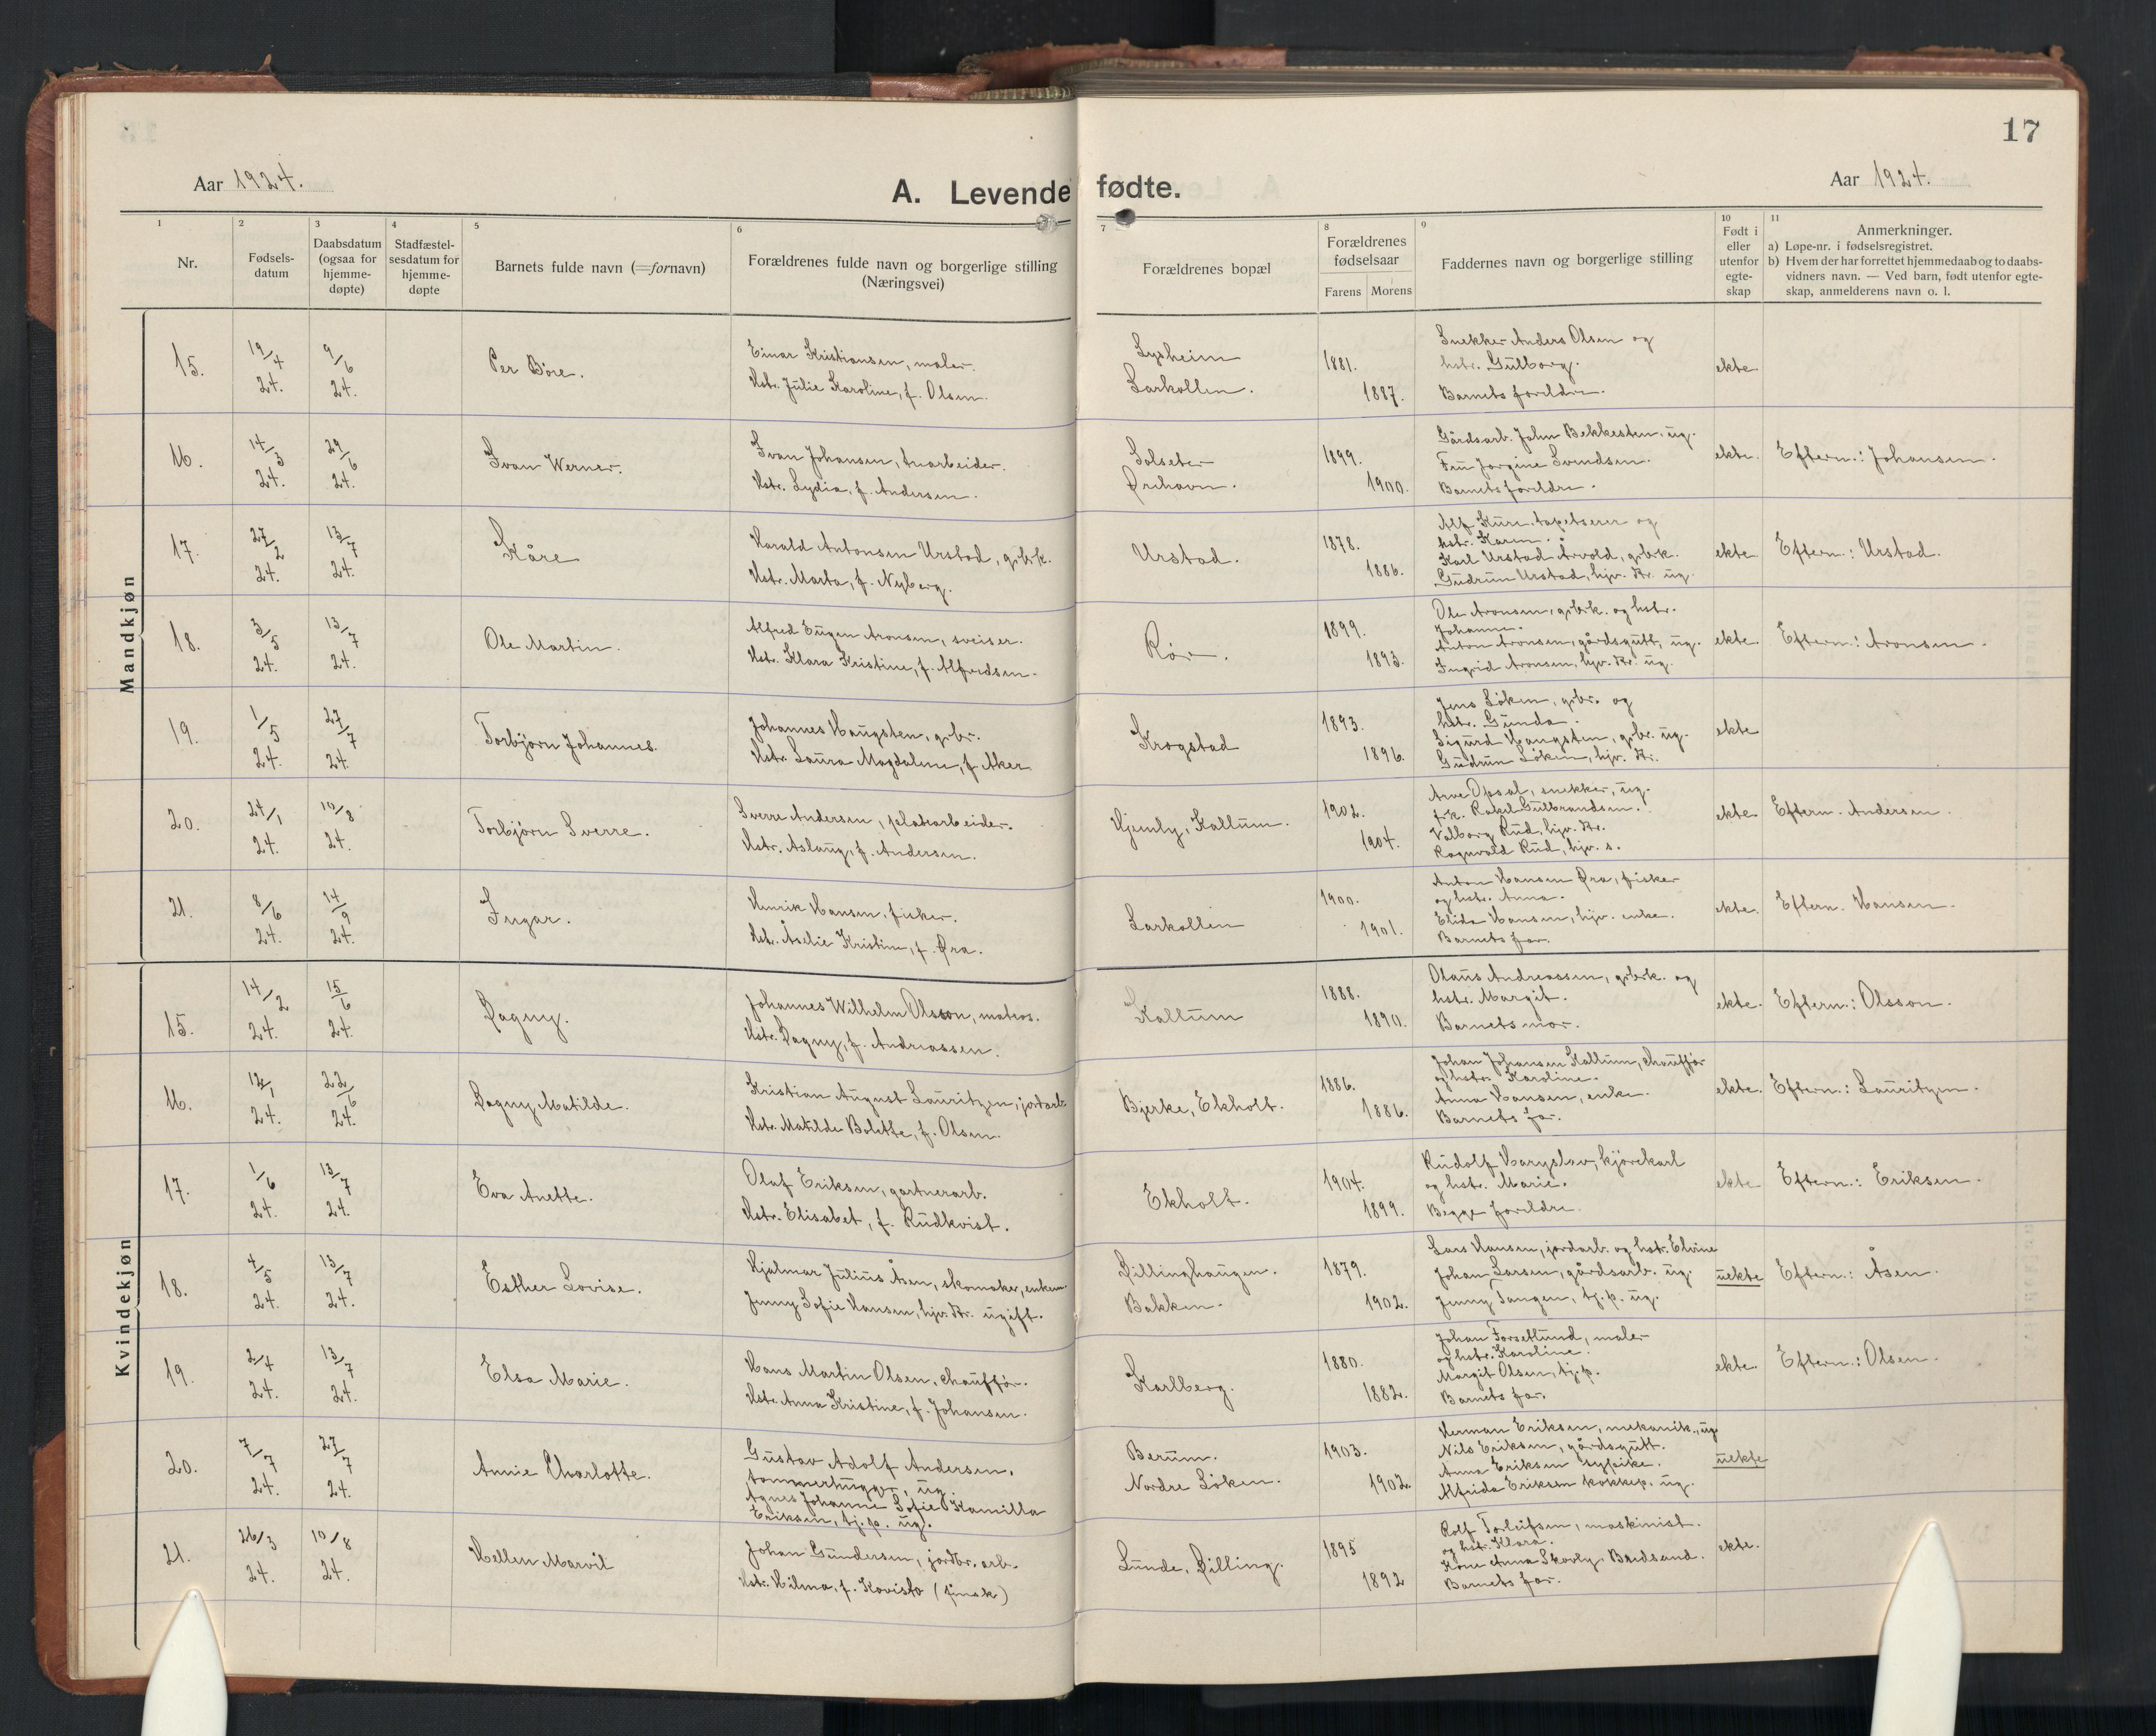 17
Aar 1924.
A. Levende fødte.
Aar 1924.
1
2
3
4
5
6
7
8
9
10
11
Nr.
Fødsels-
datum
Daabsdatum
(ogsaa for
hjemme-
døpte)
Stadfæstel-
sesdatum for
hjemme-
døpte
Barnets fulde navn (=fornavn)
Forældrenes fulde navn og borgerlige stilling
(Næringsvei)
Forældrenes bopæl
Forældrenes
fødselsaar
Farens Morens
Faddernes navn og borgerlige stilling
Født i
eller
utenfor
egte-
skap
Anmerkninger.
a) Løpe-nr. i fødselsregistret.
b) Hvem der har forrettet hjemmedaab og to daabs-
vidners navn. — Ved barn, født utenfor egte-
skap, anmelderens navn o. l.
Mandkjøn
15.
19/4 24.
9/6 24.
Per Bore.
Einar Kristiansen, maler.
Hstr. Julie Karoline, f. Olsen.
Lysheim
Larkollen.
1881.
1887.
Snekker Anders Olsen og
hstr. Gulborg.
Barnets foreldre.
ekte.
16.
14/3 24.
29/6 24.
Ivan Werner.
Ivan Johansen, anarbeider.
Hstr. Lydia, f. Andersen.
Solseter
Ørehavn.
1899.
1900.
Gårdsarb. John Bekkesten, ug.
Fru Jorgine Svendsen.
Barnets foreldre.
ekte.
Eftern.: Johansen.
17.
27/2 24.
13/7 24.
Kåre
Harald Antonsen Urstad, grbrk.
Hstr. Marta, f. Nyberg.
Urstad.
1878.
1886.
Alf Kure, tapetserer og
hstr. Karen.
Karl Urstad Årvold, grbrk.
Gudrun Urstad, hjv. dtr. ug.
ekte.
Eftern.: Urstad.
18.
3/5 24.
13/7 24.
Ole Martin.
Alfred Eugen Aronsen, sveiser.
Hstr. Klara Kristine, f. Alfredsen.
Rör.
1899.
1893.
Ole Aronsen, grbrk. og hstr.
Johanne.
Anton Aronsen, gårdsgutt, ug.
Ingrid Aronsen, hjv. dtr. ug.
ekte.
Eftern.: Aronsen.
19.
1/5 24.
27/7 24.
Torbjørn Johannes.
Johannes Haugsten, grbr.
Hstr. Laura Magdalene, f. Aker
Krogstad
1893.
1896.
Jens Löken, grbr. og
hstr. Gunda.
Sigurd Haugsten, grbr. ug.
Gudrun Löken, hjv. dtr.
ekte
20.
24/1 24.
10/8 24.
Torbjørn Sverre.
Sverre Andersen, platearbeider.
Hstr. Aslaug, f. Andersen.
Hjemly, Kallum.
1902.
1904.
Arve Opsal, snekker, ug.
frk. Rakel Gulbrandsen.
Valborg Rud, hjv. dtr.
Ragnvald Rud, hjv. s.
ekte.
Eftern. Andersen.
21.
8/6 24.
14/9 24.
Ingar.
Henrik Hansen, fisker.
Hstr. Åselie Kristine, f. Øra.
Larkollen
1900.
1901.
Anton Hansen Øra, fisker
og hstr. Anna.
Elida Hansen, hjv. enke.
Barnets far.
ekte.
Eftern. Hansen.
Kvindekjøn
15.
14/2 24.
15/6 24.
Dagny.
Johannes Wilhelm Olsson, matros.
Hstr. Dagny, f. Andreassen.
Kallum
1888.
1890.
Olaus Andreassen, grbrk. og
hstr. Margit.
Barnets mor.
ekte.
Eftern.: Olsson.
16.
12/1 24.
22/6 24.
Dagny Matilde.
Kristian August Lauritzen, jordarb.
Hstr. Matilde Bolette, f. Olsen.
Bjerke, Ekholt.
1886.
1886.
Johan Johansen Kallum, chauffør
og hstr. Karoline.
Anna Hansen, enke.
Barnets far.
ekte.
Eftern.: Lauritzen.
17.
1/6 24.
13/7 24.
Eva Anette.
Olaf Eriksen, gartnerarb.
Hstr. Elisabet, f. Rudkvist.
Ekholt.
1904.
1899.
Rudolf Haryslav, kjörekarl
og hstr. Marie.
Begge foreldre.
ekte
Eftern.: Eriksen.
18.
4/5 24.
13/7 24.
Esther Lovise.
Hjalmar Julius Åsen, skomaker, enkem.
Jenny Sofie Hansen, hjv. dtr. ugift.
Dillinghaugen.
Bakken.
1879.
1902.
Lars Hansen, jordarb. og hstr. Elvine
Johan Larsen, gårdsarb. ug.
Jenny Tangen, tj. p. ug.
uekte
Eftern.: Åsen.
19.
2/4 24.
13/7 24.
Elsa Marie.
Hans Martin Olsen, chauffør.
Hstr. Anna Kristine, f. Johansen.
Karlberg.
1880.
1882.
Johan Forsetlund, maler
og hstr. Karoline.
Margit Olsen, tj. p.
Barnets far.
ekte.
Eftern.: Olsen.
20.
7/7 24.
27/7 24.
Annie Charlotte.
Gustav Adolf Andersen,
tømmerhugger, ug.
Agnes Johanne Sofie Kamilla
Eriksen, tj. p. ug.
Berum.
Nordre Löken.
1903.
1902.
Herman Eriksen, mekanik., ug.
Nils Eriksen, gårdsgutt.
Anna Eriksen sypike.
Alfrida Eriksen kokkep. ug.
uekte
21.
26/3 24.
10/8 24.
Hellen Marvil
Johan Gundersen, jordbr. arb.
Hstr. Hilma, f. Kovisto (finsk)
Lunde, Dilling.
1895
1892
Rolf Torleifsen, maskinist.
og hstr. Klara.
Kone Anna Skovly, Bredsand.
Barnets far.
ekte.